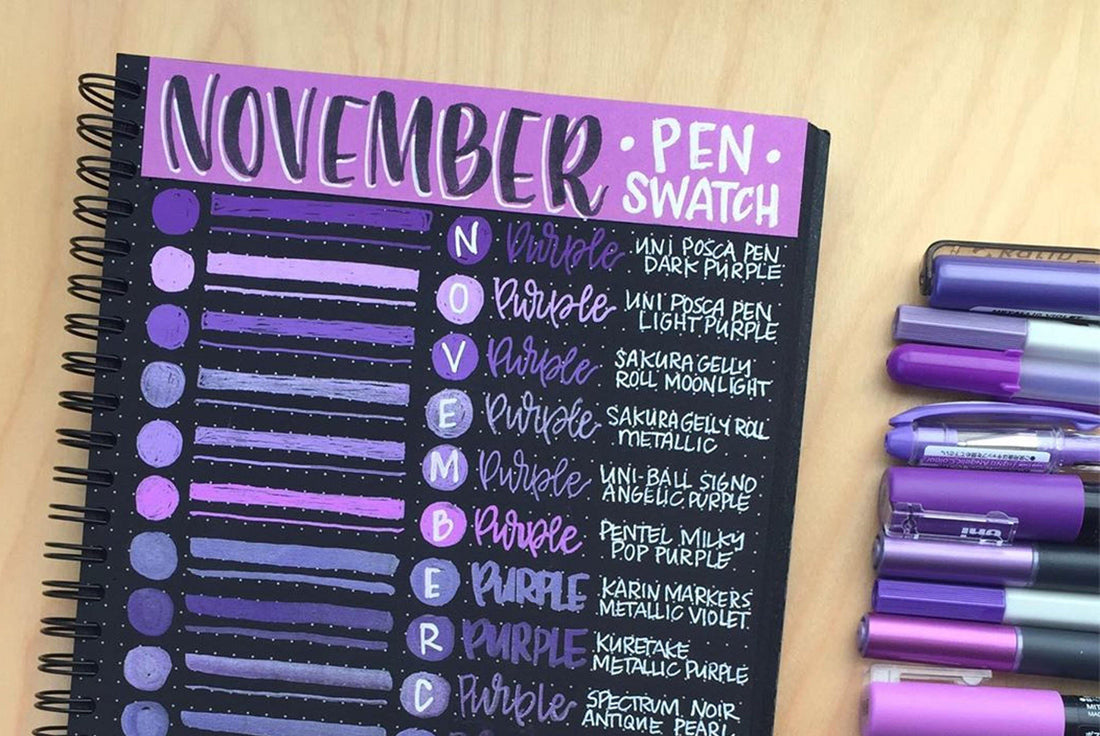 NOVEMBER
• PEN •
SWATCH
N Purple UNI POSCA PEN
DARK PURPLE
O Purple UNI POSCA PEN
LIGHT PURPLE
V Purple SAKURA GELLY
ROLL MOONLIGHT
E Purple SAKURA GELLY ROLL
METALLIC
M Purple UNI-BALL SIGNO
ANGELIC PURPLE
B Purple PENTEL MILKY
POP PURPLE
E PURPLE KARIN MARKERS
METALLIC VIOLET
R PURPLE KURETAKE
METALLIC PURPLE
C Purple SPECTRUM NOIR
ANTIQUE PEARL
uni